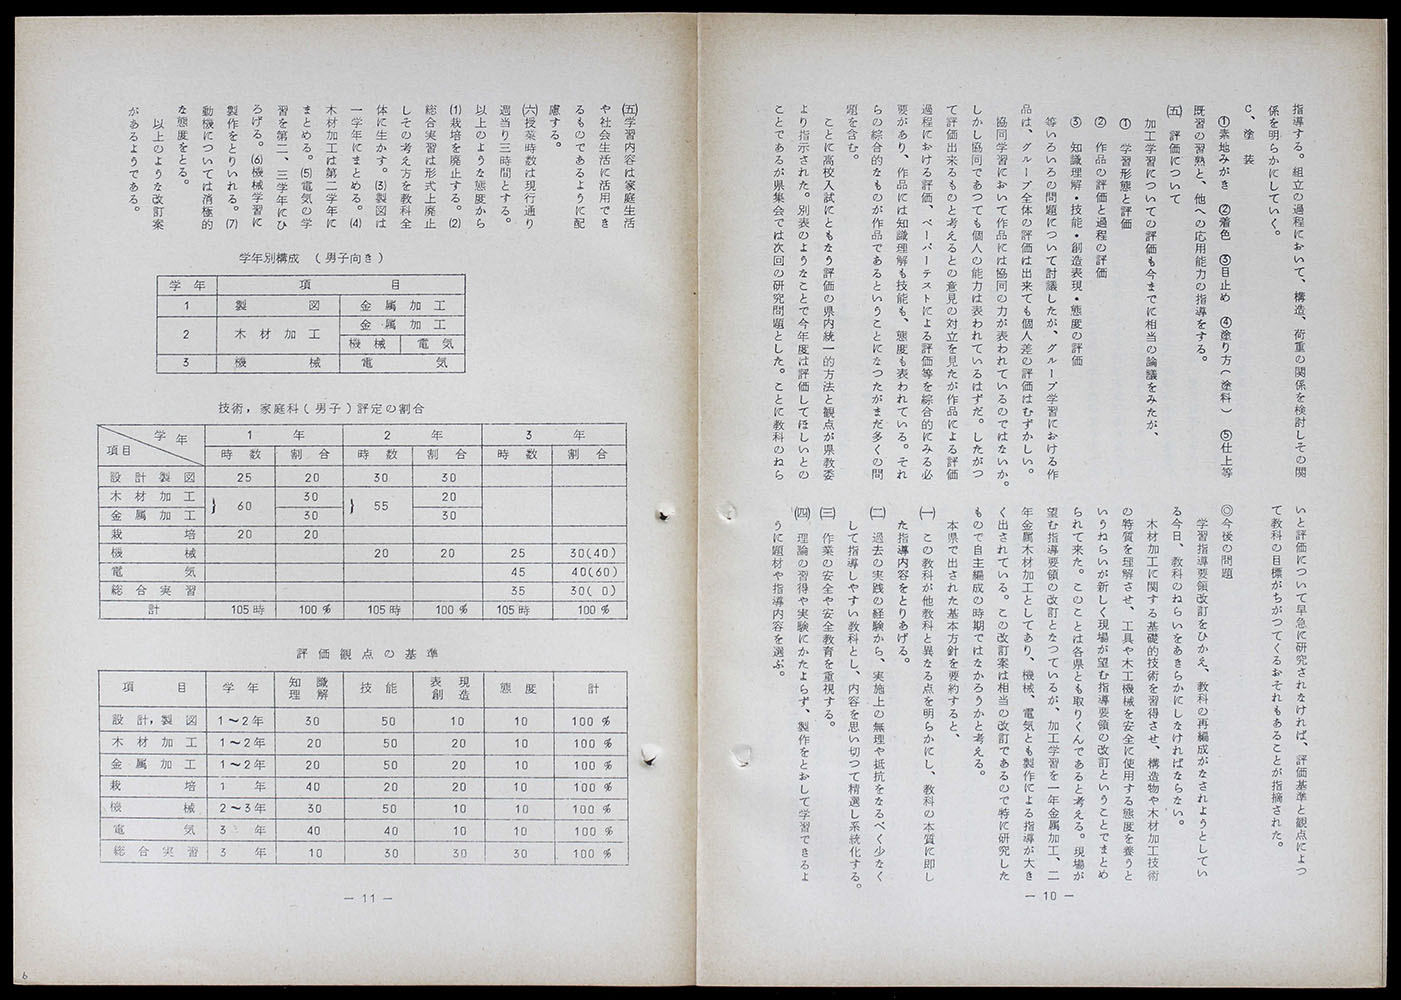 指導する。組立の過程において、構造、荷重の関係を検討しその関
係を明らかにしていく。
C、塗　装
①素地みがき　②着色　③目止め　④塗り方（塗料）　⑤仕上等
既習の習熟と、他への応用能力の指導をする。
㈤　評価について
加工学習についての評価も今までに相当の論議をみたが、
①　学習形態と評価
②　作品の評価と過程の評価
③　知識理解・技能・創造表現・態度の評価
等いろいろの問題について討議したが、グループ学習における作
品は、グループ全体の評価は出来ても個人差の評価はむずかしい。
協同学習において作品には協同の力が表われているのではないか。
しかし協同であつても個人の能力は表われているはずだ。したがつ
て評価出来るものと考えるとの意見の対立を見たが作品による評価
過程における評価、ペーパーテストによる評価等を綜合的にみる必
要があり、作品には知識理解も技能も、態度も表われている。それ
らの綜合的なものが作品であるということになつたがまだ多くの問
題を含む。
ことに高校入試にともなう評価の県内統一的方法と観点が県教委
より指示された。別表のようなことで今年度は評価してほしいとの
ことであるが県集会では次回の研究問題とした。ことに教科のねら
いと評価について早急に研究されなければ、評価基準と観点によつ
て教科の目標がちがつてくるおそれもあることが指摘された。
◎今後の問題
学習指導要領改訂をひかえ、教科の再編成がなされようとしてい
る今日、教科のねらいをあきらかにしなければならない。
木材加工に関する基礎的技術を習得させ、構造物や木材加工技術
の特質を理解させ、工具や木工機械を安全に使用する態度を養うと
いうねらいが新しく現場が望む指導要領の改訂ということでまとめ
られて来た。このことは各県とも取りくんであると考える。現場が
望む指導要領の改訂となつているが、加工学習を一年金属加工、二
年金属木材加工としてあり、機械、電気とも製作による指導が大き
く出されている。この改訂案は相当の改訂であるので特に研究した
もので自主編成の時期ではなかろうかと考える。
本県で出された基本方針を要約すると、
㈠　この教科が他教科と異なる点を明らかにし、教科の本質に即し
た指導内容をとりあげる。
㈡　過去の実践の経験から、実施上の無理や抵抗をなるべく少なく
して指導しやすい教科とし、内容を思い切つて精選し系統化する。
㈢　作業の安全や安全教育を重視する。
㈣　理論の習得や実験にかたよらず、製作をとおして学習できるよ
うに題材や指導内容を選ぶ。
— 10 —
㈤学習内容は家庭生活
や社会生活に活用でき
るものであるように配
慮する。
㈥授業時数は現行通り
週当り三時間とする。
以上のような態度から
⑴栽培を廃止する。⑵
総合実習は形式上廃止
しその考え方を教科全
体に生かす。⑶製図は
一学年にまとめる。⑷
木材加工は第二学年に
まとめる。⑸電気の学
習を第二、三学年にひ
ろげる。⑹機械学習に
製作をとりいれる。⑺
動機については消極的
な態度をとる。
以上のような改訂案
があるようである。
学年別構成　（男子向き）
学　年　項　目
1　製　図　金　属　加　工
2　木　材　加　工　金　属　加　工
機　械　電　気
3　機　械　電　気
技術，家庭科（男子）評定の割合
学　年　項目　1　年　2　年　3　年
時　数　割　合　時　数　割　合　時　数　割　合
設　計　製　図　25　20　30　30
木　材　加　工　｝60　30　｝55　20
金　属　加　工　30　30
栽　培　20　20
機　械　20　20　25　30(40)
電　気　45　40(60)
総　合　実　習　35　30( 0)
計　105時　100％　105時　100％　105時　100％
評　価　観　点　の　基　準
項　目　学　年　知　識　理　解　技　能　表　現　創　造　態　度　計
設　計，製　図　1〜2年　30　50　10　10　100％
木　材　加　工　1〜2年　20　50　20　10　100％
金　属　加　工　1〜2年　20　50　20　10　100％
栽　培　1　年　40　20　20　10　100％
機　械　2〜3年　30　50　10　10　100％
電　気　3　年　40　40　10　10　100％
総　合　実　習　3　年　10　30　30　30　100％
— 11 —
6